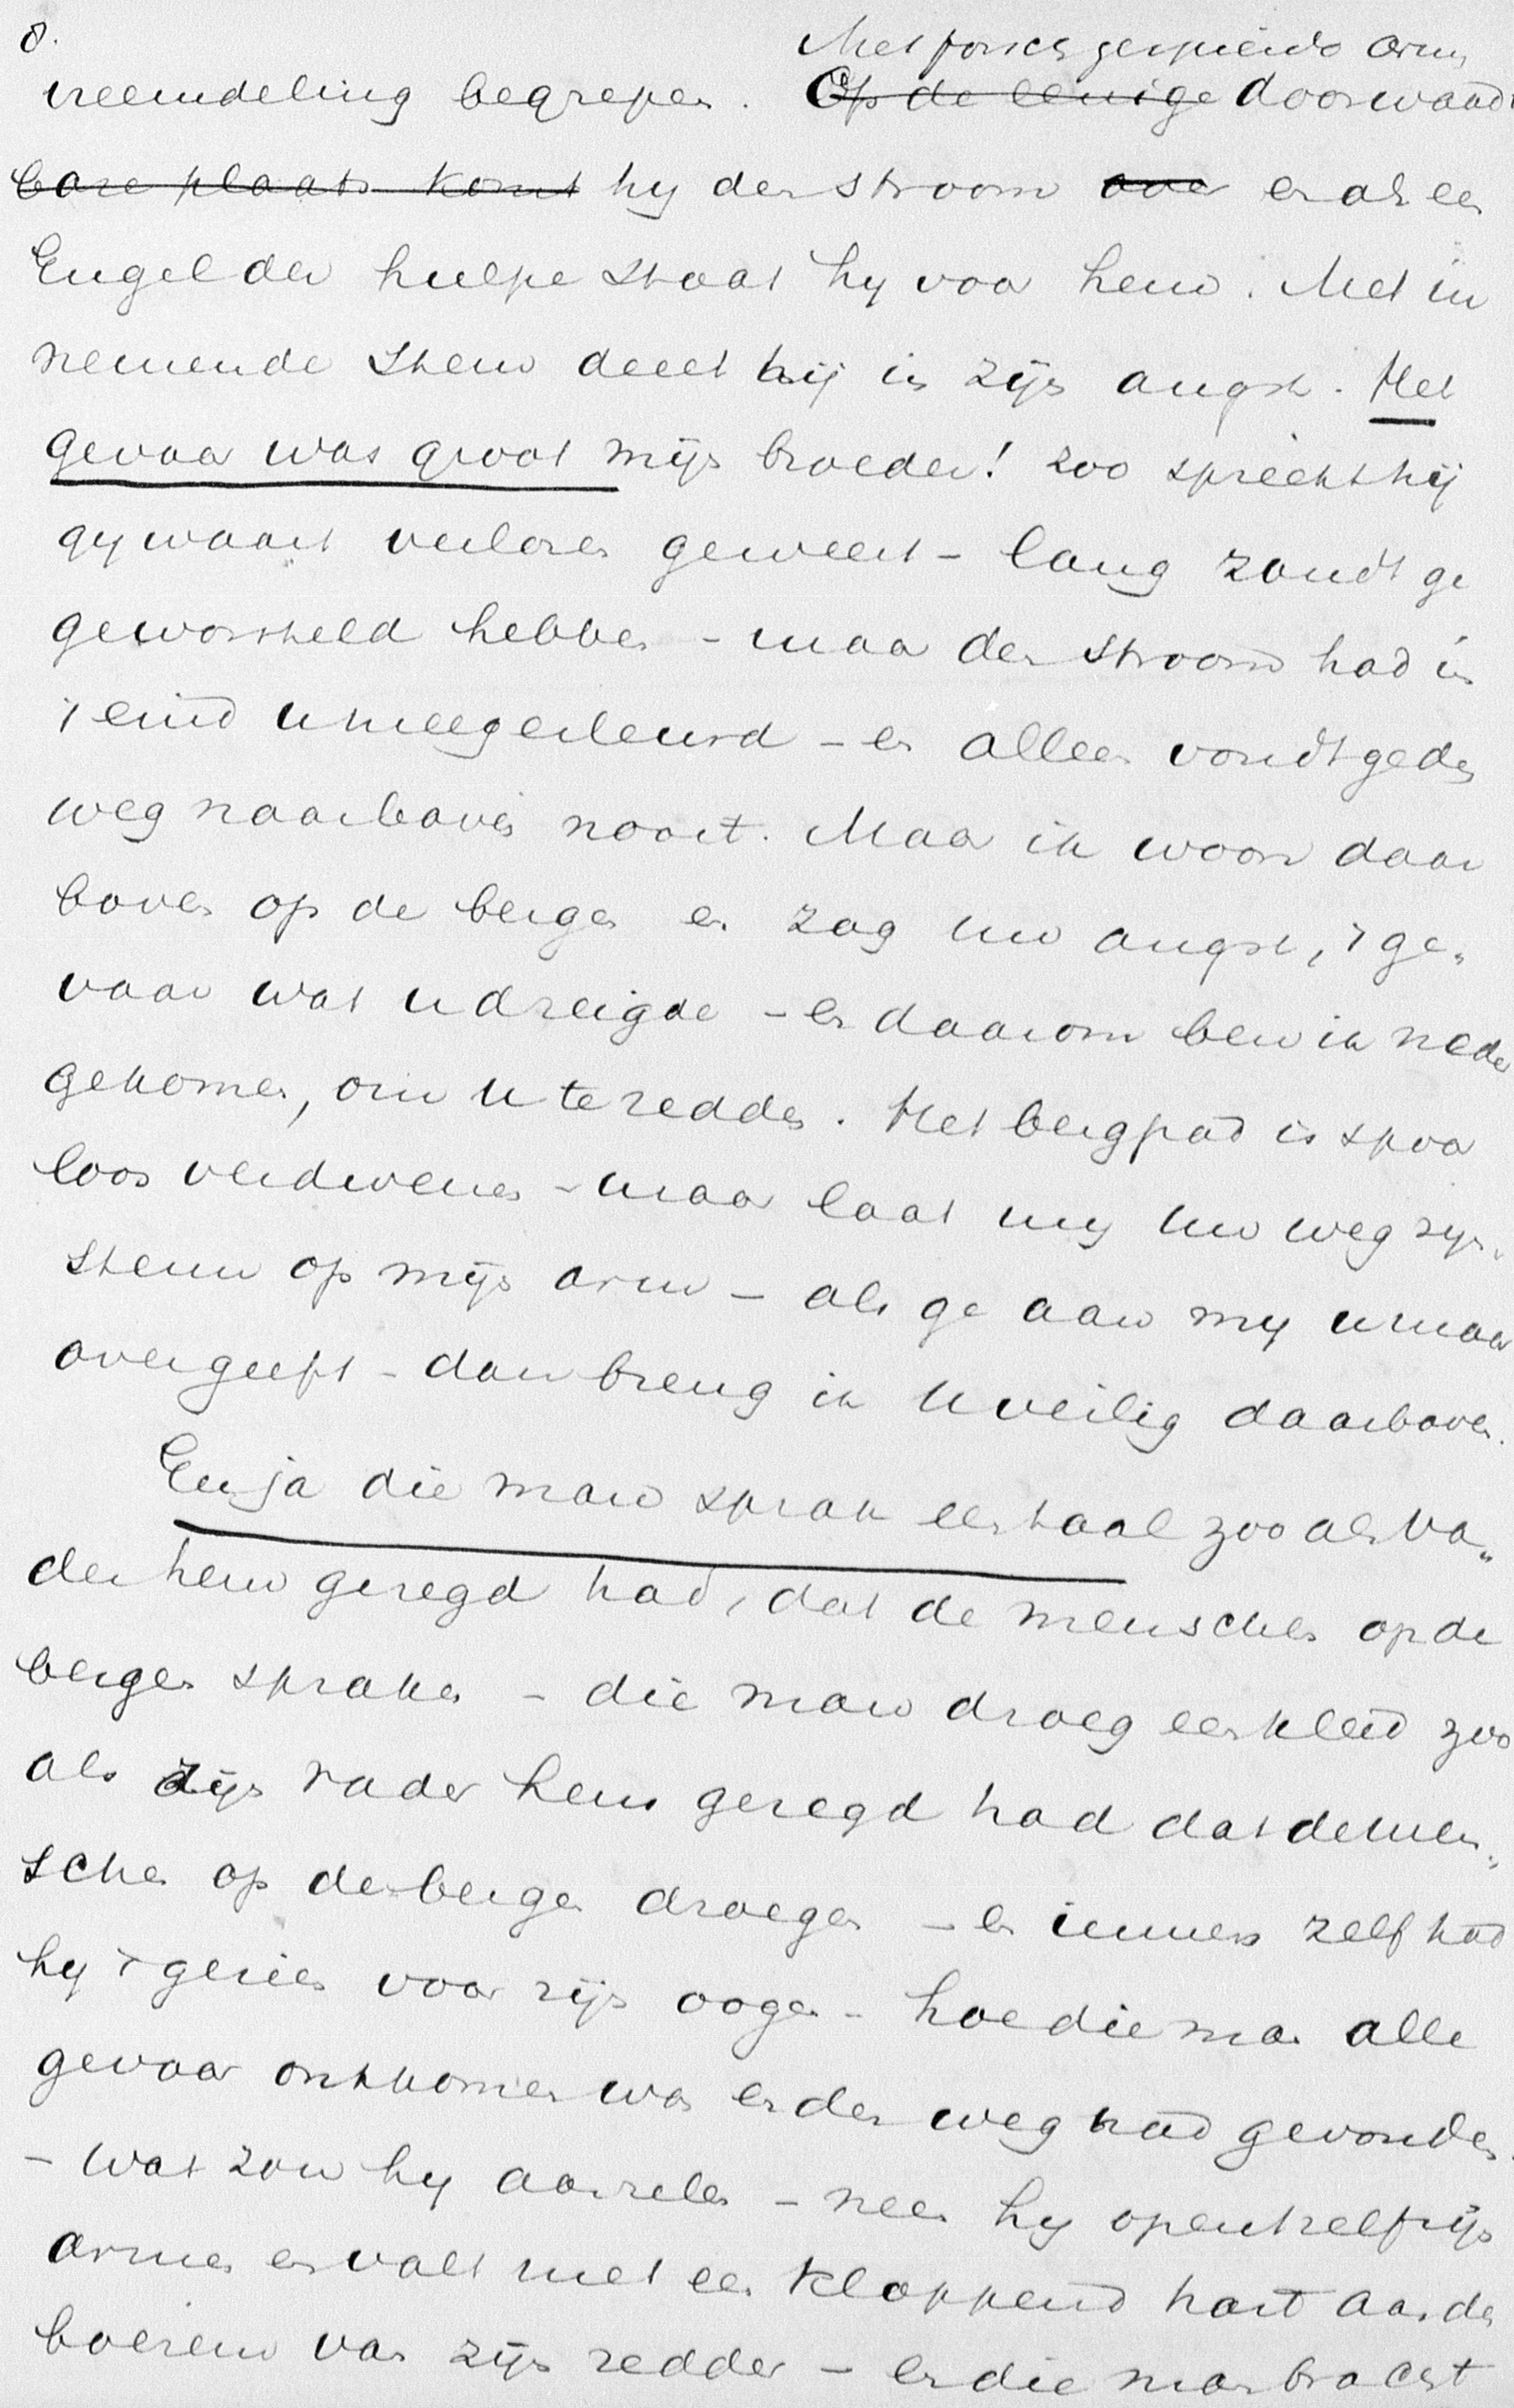 8.
Met forsch gespierde arm
vreemdeling begrepen. Op de eenige doorwaadt
bare plaats komt hy den stroom ove en als een
Engel der hulpe staat hy voor hem. Met in
nemende stem deelt hij in zijn angst. Het
gevaar was groot mijn broeder! zoo spreekt hij
gy waart verloren geweest - lang zoudt ge
geworsteld hebben - maar den stroom had in
't eind u meegesleurd - en alleen vondt ge den
weg naar boven nooit. Maar ik woon daar
boven op de bergen en zag uw angst, 't ge„
vaar wat u dreigde - en daarom ben ik neder
gekomen, om u te redden. Het bergpad is spoor
loos verdwenen - maar laat my uw weg zyn.
Steun op mijn arm - als ge aan my u maar
overgeeft - dan breng ik u veilig daarboven.
En ja die man sprak een taal zooals Va„
der hem gezegd had, dat de menschen op de
bergen spraken - die man droeg een kleed zoo
als zijn vader hem gezegd had dat de men„
schen op de bergen droegen - en immers zelf had
hy 't gezien voor zijn oogen - hoe die man alle
gevaar ontkomen was en den weg had gevonden.
- Wat zou hy aarzelen - neen hy opent zelf zijn
armen en valt met een kloppend hart aan den
boezem van zijn redder - en die man bracht